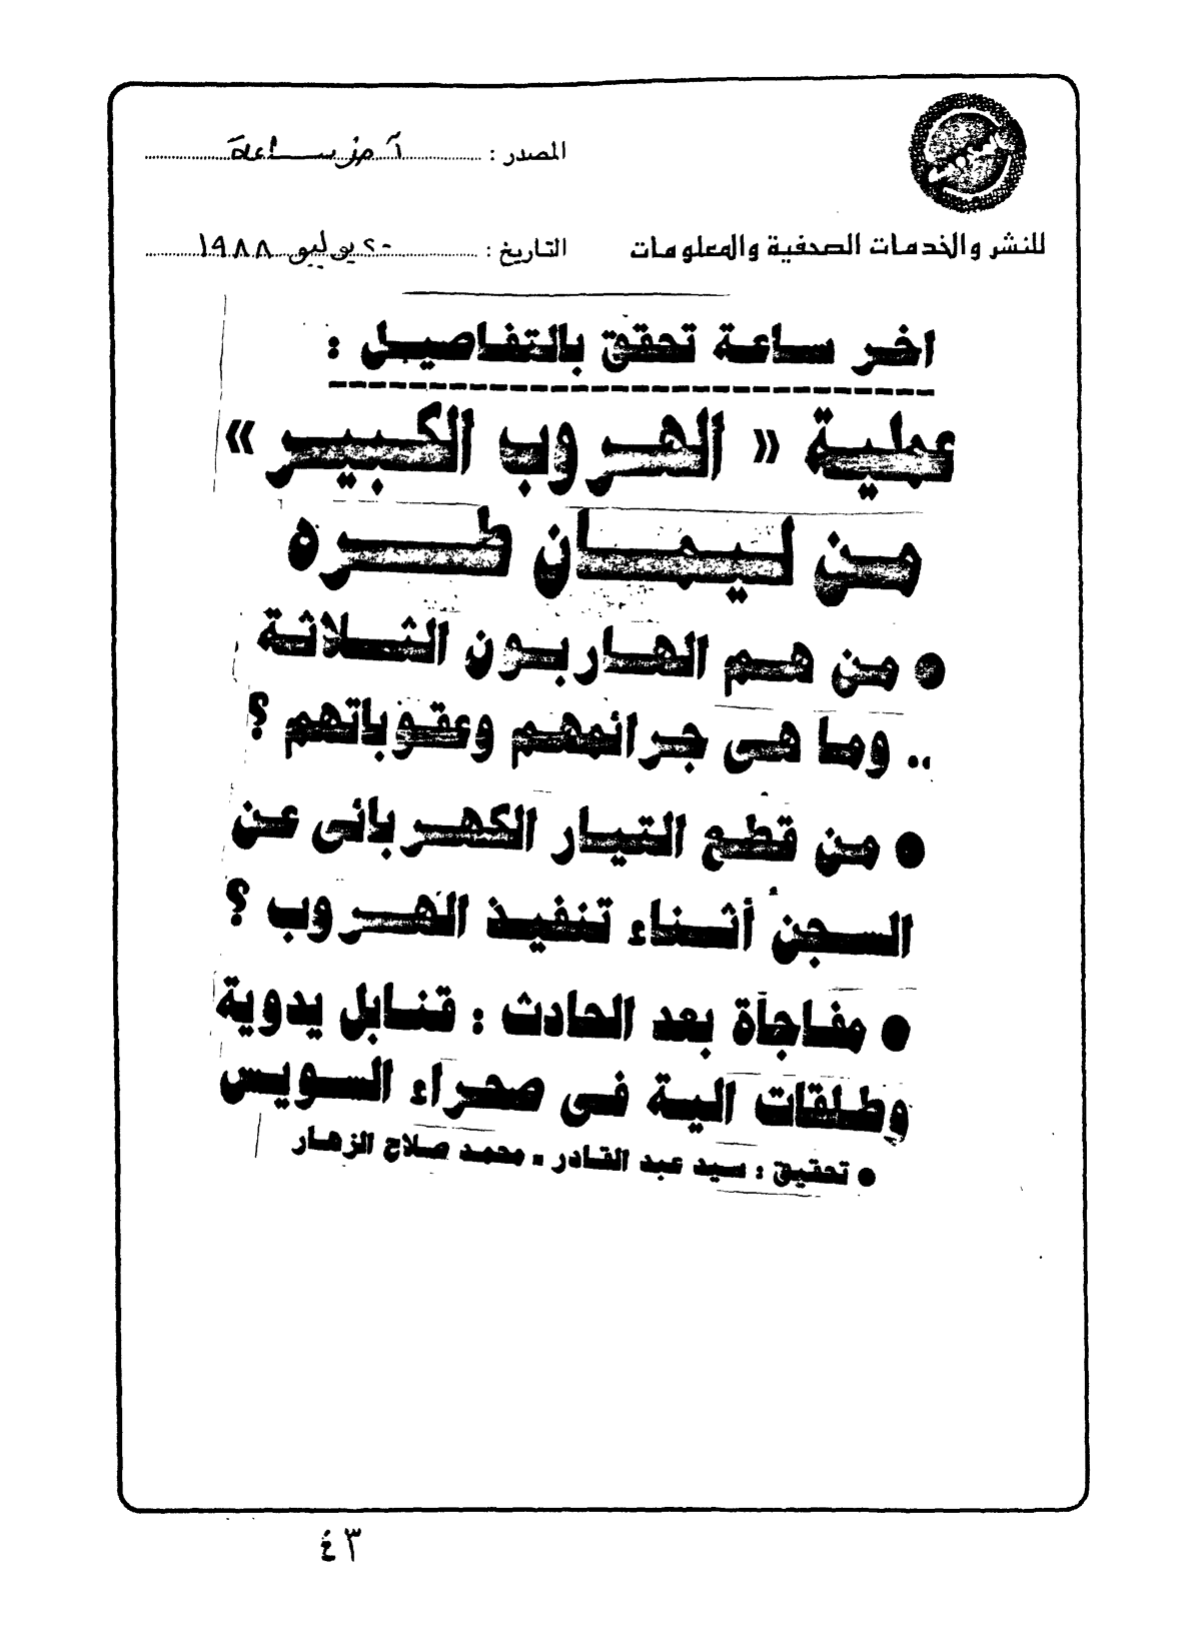 المصدر : آخر ساعة
للنشر والخدمات الصحفية والمعلومات
التاريخ : ٢٠ يوليو ١٩٨٨
اخر ساعة تحقق بالتفاصيل :
عملية « الهروب الكبير »
من ليمان طره
● من هم الهاربون الثلاثة
.. وما هى جرائمهم وعقوباتهم ؟
● من قطع التيار الكهربائى عن
السجن أثناء تنفيذ الهروب ؟
● مفاجأة بعد الحادث : قنابل يدوية
وطلقات الية فى صحراء السويس
● تحقيق : سيد عبد القادر - محمد صلاح الزهار
٤٣